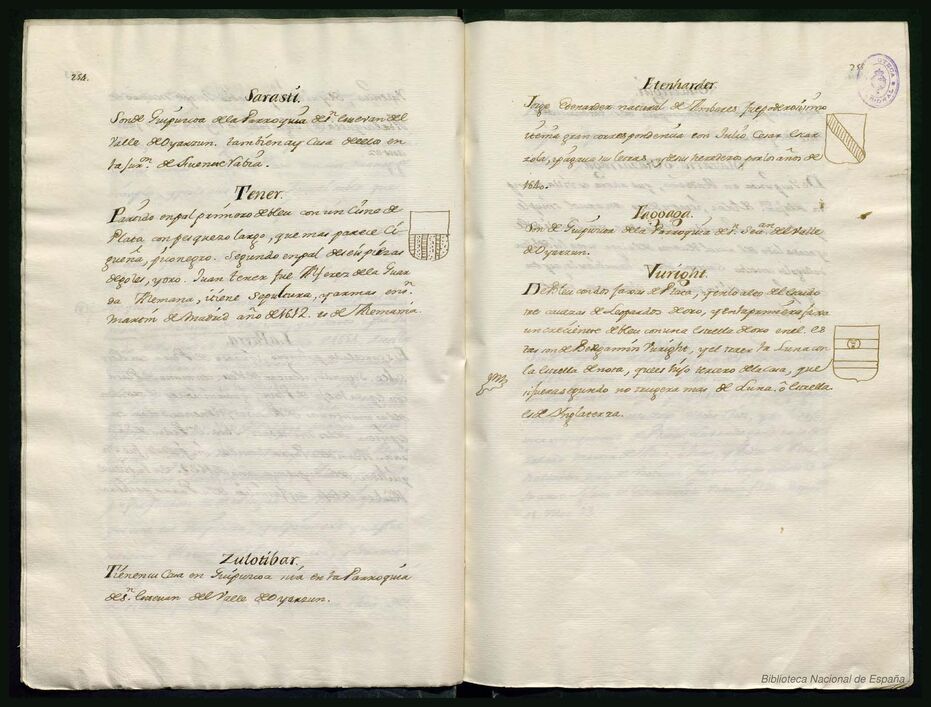 254.
Sarasti.
Son de Guipuzcoa de la Parroquia de Sn. Estevan del
Valle de Oyarzun. tambien ay Casa de ello en
la Jurn. de Fuenterrabia.
Tener.
Partido en pal primero de bleu con un Cisne de
Plata con pesquezo largo, que mas parece Ci
gueña, pico negro. Segundo en pal de seis piezas
de goles, y oro. Juan tener fue Alferez de la Guar
da Alemana, tiene Sepultura, y armas en sn.
Martin de Madrid año de 1612. es de Alemania.
Zulotibar.
Tienen su Casa en Guipuzcoa en la Parroquia
de Sn. Estevan del Valle de Oyarzun.
Etenharder.
natural de Amberes
tenia gran correspondencia con Julio Cesar
y sus herederos por los años de
1640.
Lagoaga.
Son de Guipuzcoa de la Parroquia de Sn. del Valle
de Oyarzun.
Vuright.
De bleu con dos faxas de Plata, y en lo alto del escudo
tre cavezas de Leopardos de oro, y en la primera faxa
un creciente de bleu con una Estrella de oro en el. Es
tas son de Benjamin Vuright, y el traer la Luna con
la Estrella denota, que es hijo tercero de la Casa, que
si fuera segundo no trugera mas de Luna, ô Estrella
es de Inglaterra.
Biblioteca Nacional de España